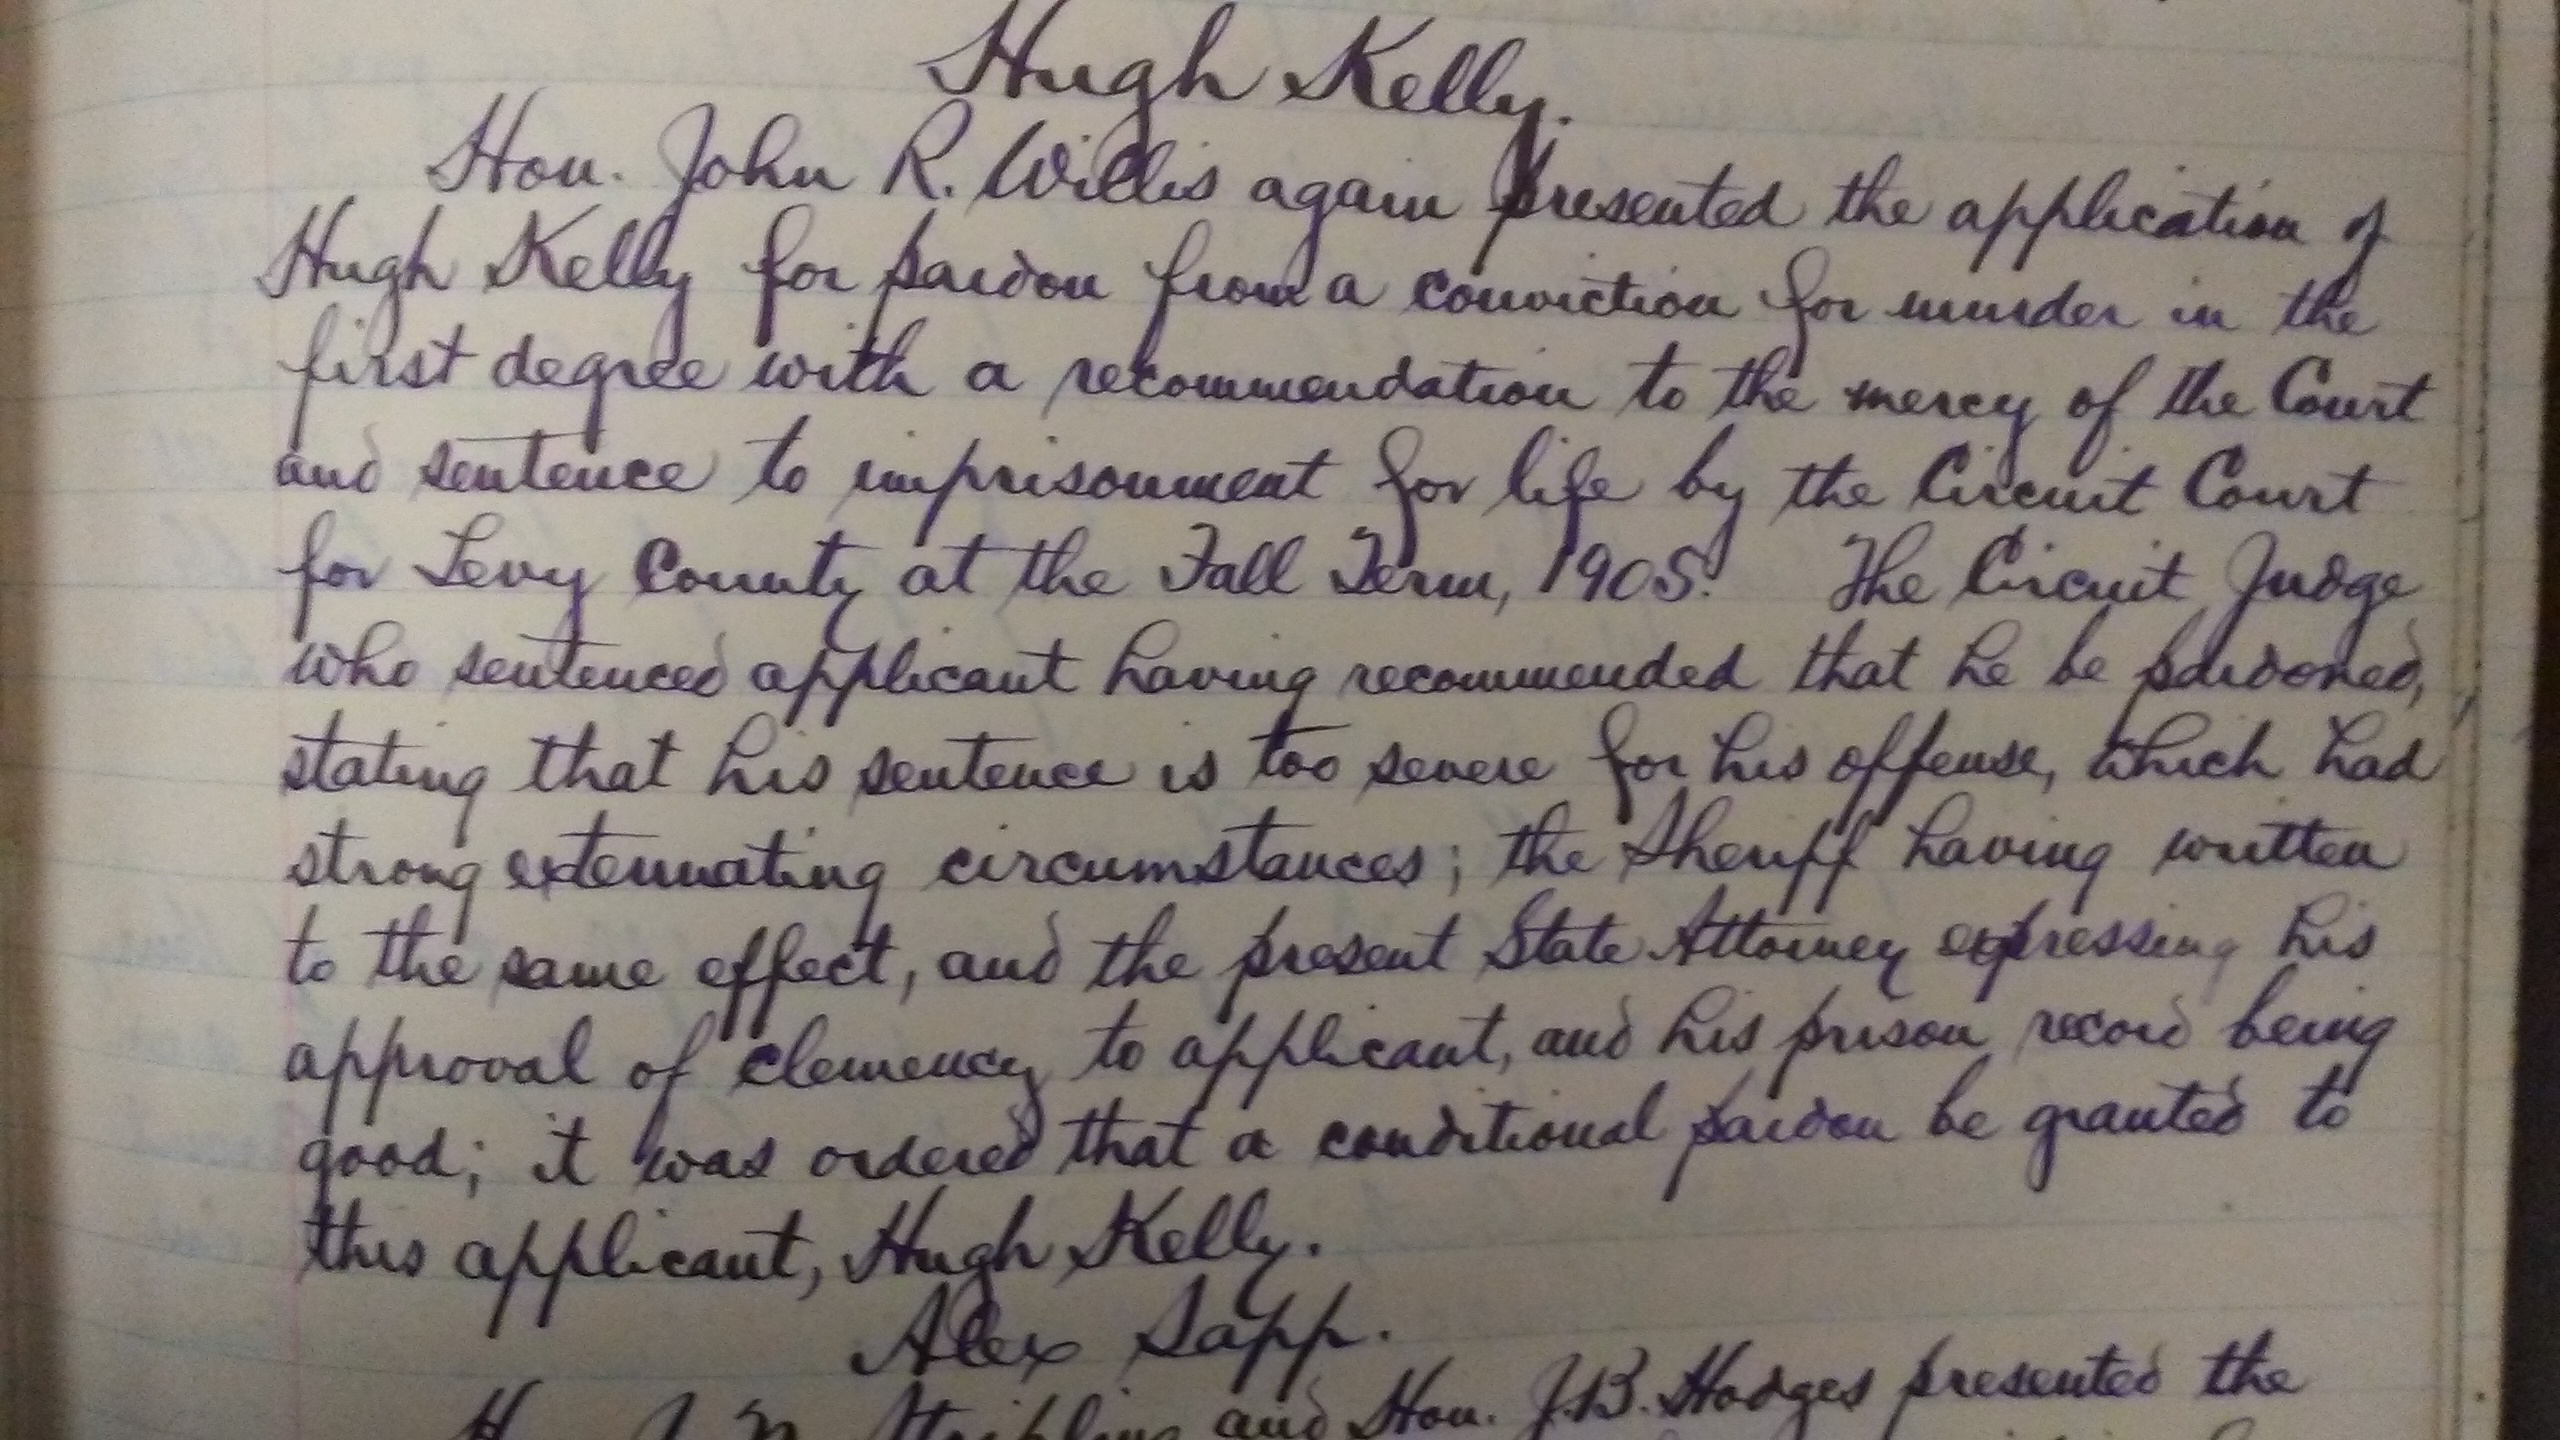 Hugh Kelly.
Hon. John R. Willis again presented the application of
Hugh Kelly for pardon from a conviction for murder in the
first degree with a recommendation to the mercy of the Court
and sentence to imprisonment for life by the Circuit Court
for Levy County at the Fall Term, 1905. The Circuit Judge
who sentenced applicant having recommended that he be pardoned,
stating that his sentence is too severe for his offense, which had
strong extenuating circumstances; the Sheriff having written
to the same effect, and the present State Attorney expressing his
approval of clemency to applicant, and his prison record being
good; it was ordered that a conditional pardon be granted to
this applicant, Hugh Kelly.
Alex Sapp.
Stripling and Hon. J.B. Hodges presented the